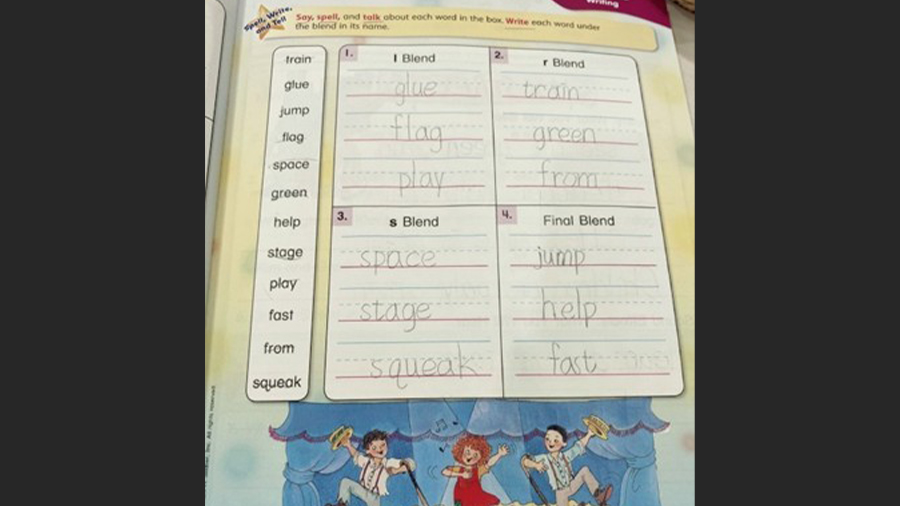 Writing
Spell, Write,
and Tell
Say, spell, and talk about each word in the box. Write each word under
the blend in its name.
train
glue
jump
flag
space
green
help
stage
play
fast
from
squeak
1.
l Blend
glue
flag
play
2.
r Blend
train
green
from
3.
s Blend
space
stage
squeak
4.
Final Blend
jump
help
fast
Inc. All rights reserved.